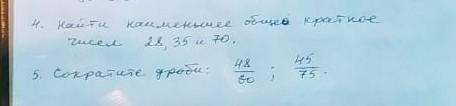 4. Найти наименьшее общее кратное
чисел 28, 35 и 70.
5. Сократите дроби: 48/60 ; 45/75.